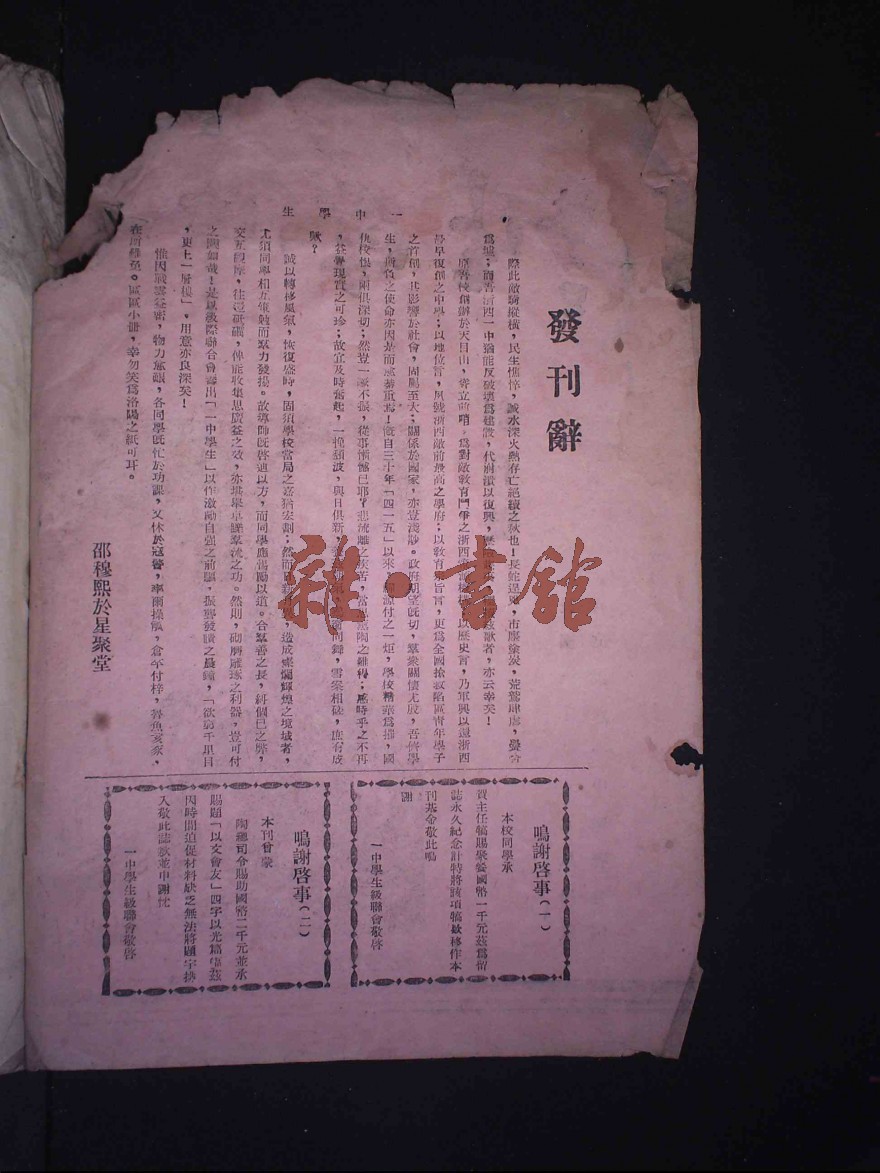 發刊辭
際此敵騎縱橫，民生憔悴，誠水深火熱存亡絕續之秋也！長蛇逞兇，市廛
爲墟；而吾浙西一中猶能反破壞爲建設，代崩潰以復興，者，亦云幸矣！
吾校創辦於天目山，爲對敵教育鬥爭之浙西以歷史言，乃軍興以還浙西
最早復創之中學；以地位言，夙號浙西敵前最高之學府；以教育宗旨言，更爲全國搶救陷區青年學子
之首創，其影響於社會，固屬至大；關係於國家，亦豈淺尠。政府期望旣切，羣衆關懷尤殷，吾儕學
生，所負之使命亦因是而愈綦重焉！慨自三十年「四一五」以來，付之一炬，學校精華爲摧，國
仇校恨，兩俱深切；然豈一蹶不振，從事懺憾已耶？悲流離之疾苦，當之難得；感時乎之不再
，益覺現實之可珍；故宜及時奮起，一挽頹波，與日俱新，雪案相磋，庶有成
歟？
誠以轉移風氣，恢復盛時，固須學校當局之嘉猷宏劃；然而造成燦爛輝煌之境域者，
尤須同學相互策勉而羣力發揚。故導師旣啓廸以方，而同學應勗勵以道。合羣善之長，糾個己之弊，
交互觀摩，往還砥礪，俾能收集思廣益之效，亦堪舉卓躒羣流之功。然則，砌磨琢之利器，豈可付
之闕如哉！是以級際聯合會壽出「一中學生」以作激勵自强之前驅，振聾發聵之晨鐘，「欲窮千里目
，更上一層樓」，用意亦良深矣！
惟因戰雲益密，物力愈艱，各同學旣忙於功課，又怵於寇警，率爾操觚，倉卒付梓，魯魚亥豕，
在所難免。區區小冊，幸勿笑爲洛陽之紙可耳。
邵穆熙於星聚堂
一中學生
鳴謝啓事（一）
本校同學承
賀主任犒賜聚餐國幣一千元茲爲留
誌永久紀念計特將該項犒款移作本
刊基金敬此鳴
謝
一中學生級聯會敬啓
鳴謝啓事（二）
本刊曾蒙
陶總司令賜助國幣二千元並承
賜題「以文會友」四字以光篇幅茲
因時間迫促材料缺乏無法將題字排
入敬此誌歉並申謝忱
一中學生級聯會敬啓
雜·書館